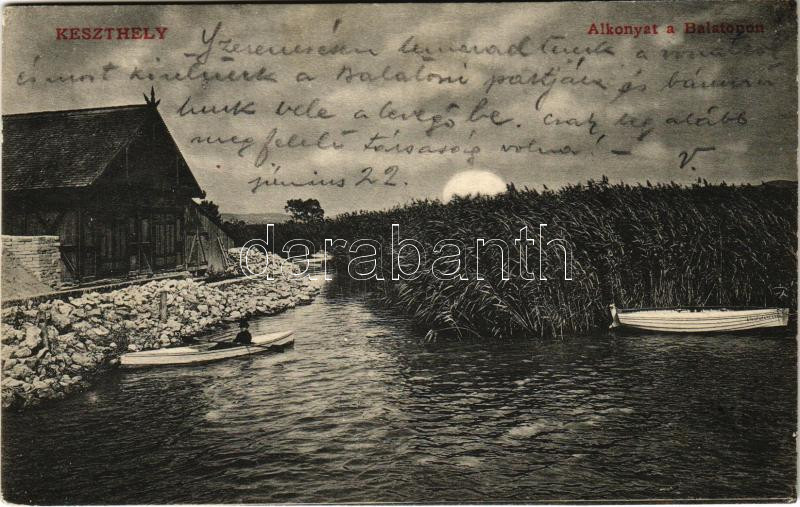 KESZTHELY
Alkonyat a Balatonon
Szerencsésen le a
és most kiülünk a Balatoni partjára és
unk bele a levegőbe. Csak legalább
megfelelő társaság volna! – V.
június 22.
darabanth